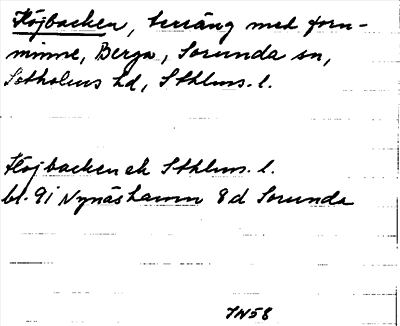 Höjbacken, terräng med forn-
minne, Berga, Sorunda sn,
Sotholms hd, Sthlms. l.
Höjbacken ek Sthlms. l.
bl. 9i Nynäshamn 8d Sorunda
IN58